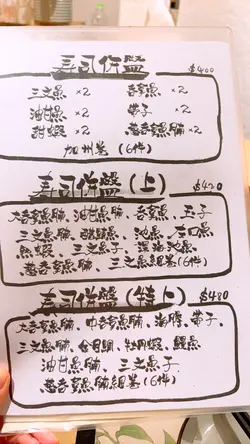 寿司併盤 $400
三文魚 ×2 吞拿魚 ×2
油甘魚 ×2 帶子 ×2
甜蝦 ×2 葱吞拿魚腩 ×2
加州卷 (6件)
寿司併盤 (上) $420
大吞拿魚腩、油甘魚腩、吞拿魚、玉子
三文魚腩、醋鯖魚、池魚、左口魚
魚蝦、三文魚子、深海池魚
葱吞拿魚腩、三文魚細卷 (6件)
寿司併盤 (特上) $480
大吞拿魚腩、中吞拿魚腩、海膽、帶子、
三文魚腩、金目鯛、牡丹蝦、鰹魚
油甘魚腩、三文魚子
葱吞拿魚腩細卷 (6件)